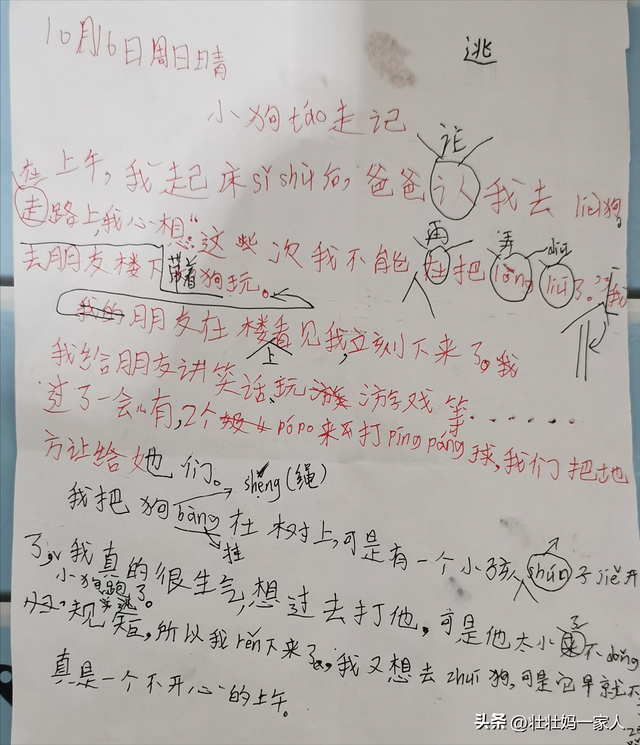 10月16日周日晴
逃
小狗táo走记
让
在上午,我起床sǐ shù后,爸爸认我去 liù狗,
走路上,我心想“这些次我不能在把lòng liū了。”我
再 弄 diū
去朋友楼下带着狗玩。
我的朋友在楼看见我,立刻下来了。我
上
我给朋友讲笑话、玩游戏等......
过了一会儿有,2个 pópo来打pīng pāng球,我们把地
方让给她们。
shéng(绳)
我把狗bǎng在树上,可是有一个小孩人shún子jiě开
拴
了,我真的很生气,想过去打他,可是他太小来不dǒng
小狗跑了。
了
规矩,所以我rěn下来了。我又想去zhuī狗,可是它早就不
真是一个不开心的上午。
头条 @壮壮妈一家人